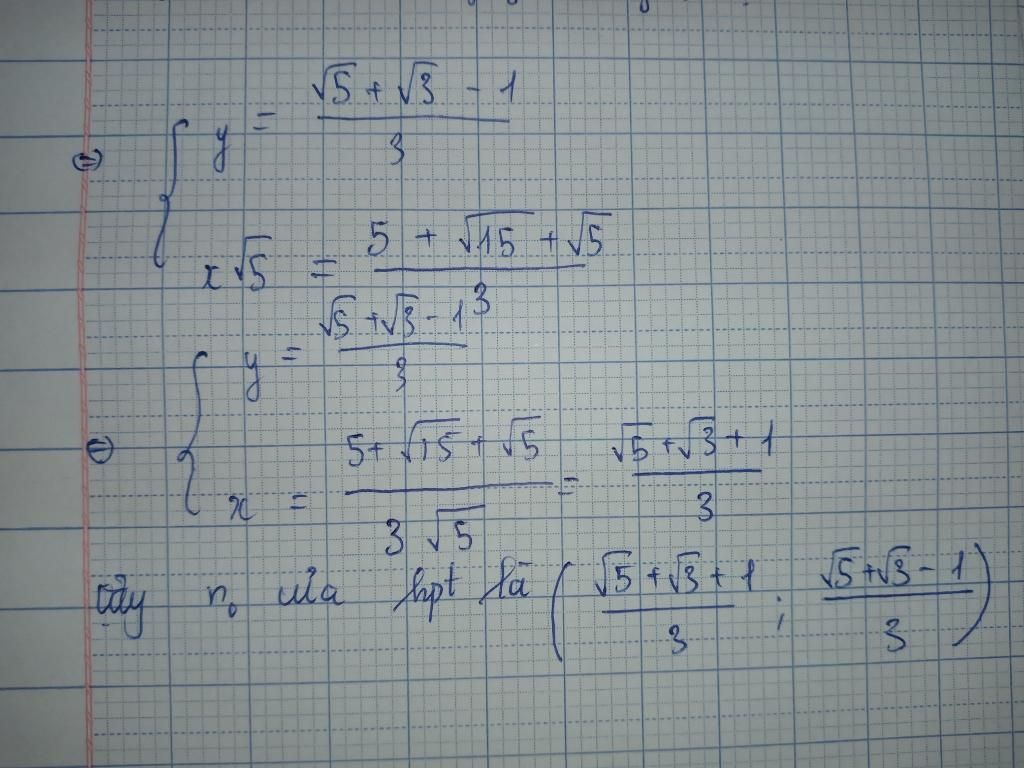 ⇔ { y = (√5 + √3 - 1)/3
x√5 = (5 + √15 + √5)/3
⇔ { y = (√5 + √3 - 1)/3
x = (5 + √15 + √5)/(3√5) = (√5 + √3 + 1)/3
Vậy n₀ của hpt là ( (√5 + √3 + 1)/3 ; (√5 + √3 - 1)/3 )